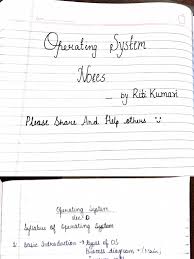 Operating System
Notes
- by Riti Kumari
Please Share And Help others
Operating System
Syllabus of Operating System
Basic Introduction → types of OS
Process diagram